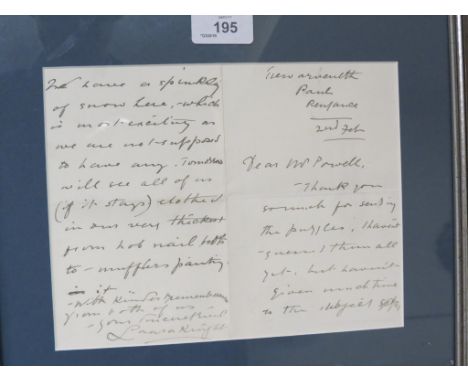 195
Trewarveneth
Paul
Penzance
2nd Feb
Dear Mr Powell,
- Thank you
so much for sending
the puzzles, I haven't
guessed them all
yet, but haven't
given much time
to the subject yet,
We have a sprinkly
of snow here, - which
is most exciting as
we are not supposed
to have any. Tomorrow
will see all of us
(if it stays) clothed
in our very thickest
from hob nail boots
to - mufflers panting
in it
- With kindest remembrances
from both of us
- Your sincere friend
Laura Knight